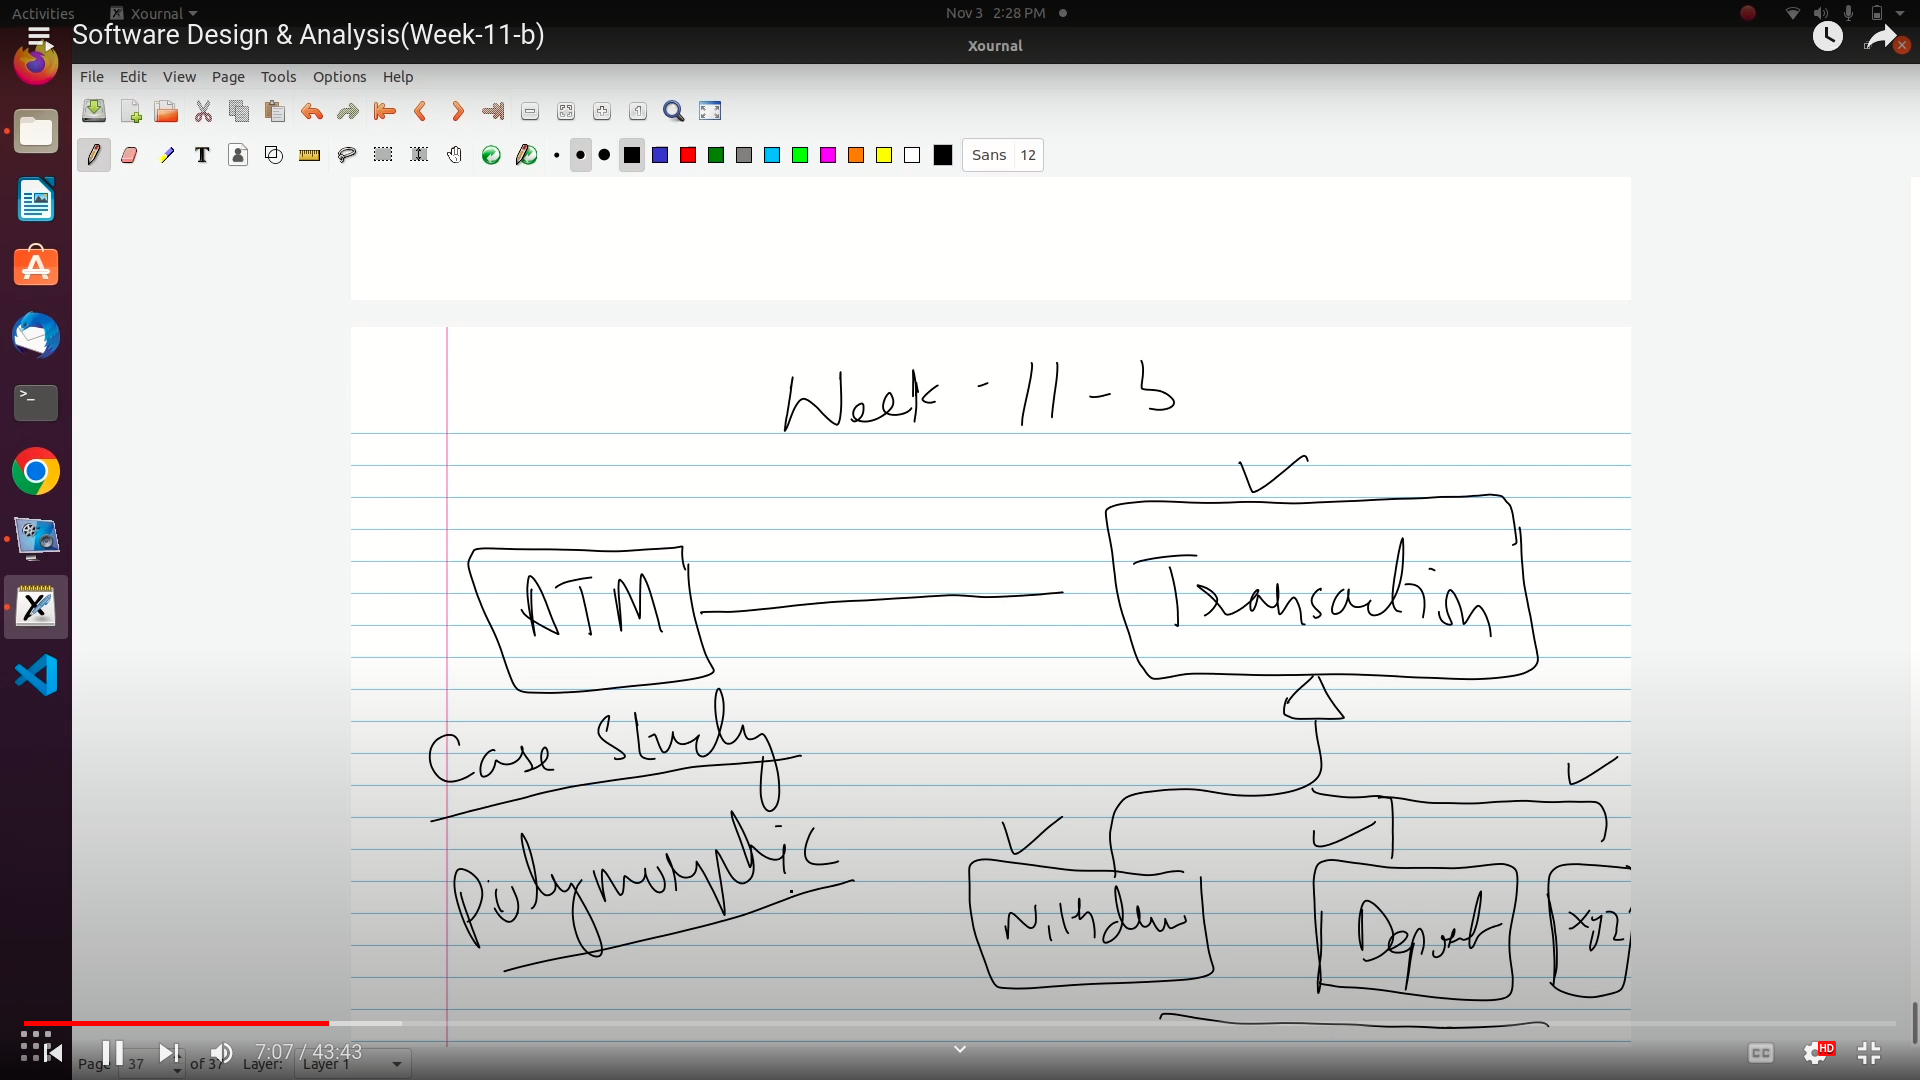 Activities
Xournal
Nov 3 2:28 PM
Software Design & Analysis(Week-11-b)
Xournal
File Edit View Page Tools Options Help
Sans 12
Week - 11 - b
ATM
Transaction
Case Study
Polymorphic
Withdraw
Deposit
xyz
7:07 / 43:43
CC
HD
Page 37 of 37 Layer: Layer 1